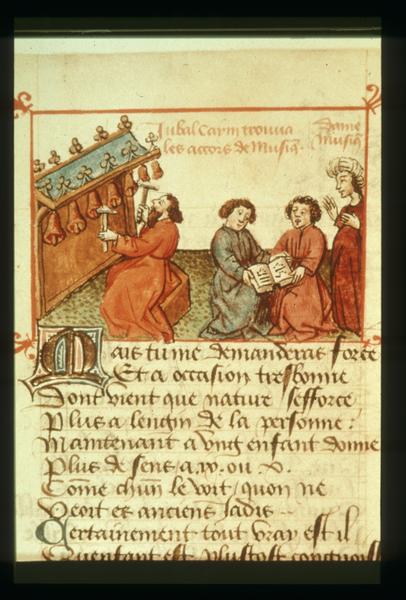 Iubal Carm trouva
les accors de Musiq.
Dame
Musiq
Mais tu me demanderas force
Et a occasion tresbonne
Dont vient que nature sefforce
Plus a lengin de la personne :
Maintenant a ung enfant donne
Plus de sens / a .xv. ou .v.
Cōme chūn le voit / quon ne
Veoit es anciens Jadis --
Certainement tout vray est il
Quenfant est plustost